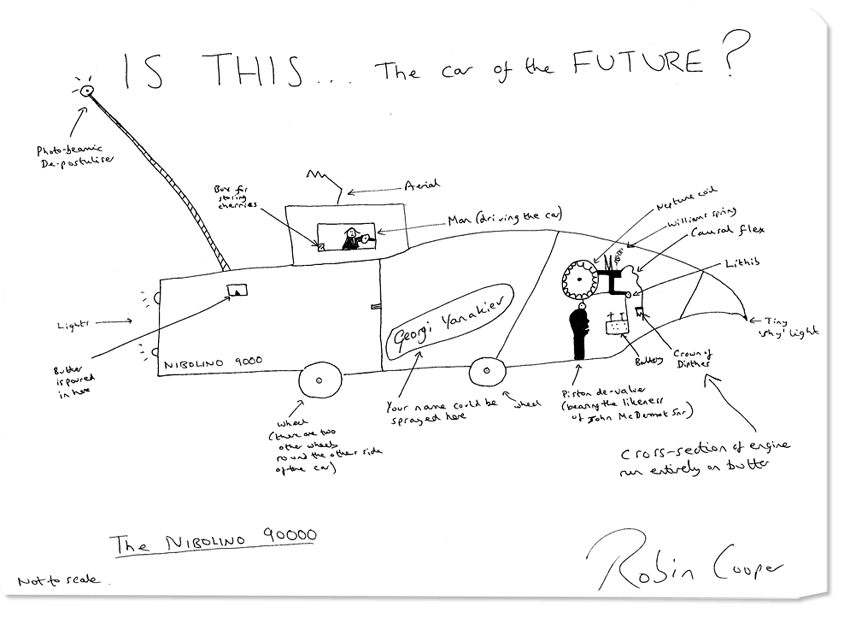 IS THIS... The car of the FUTURE?
Photo-beamic
De-postuliser
Box for
storing
cherries
Aerial
Man (driving the car)
Neptune coil
Williams spring
Causal flex
Lithib
Tiny
'why' light
Lights
Butter
is poured
in here
NIBOLINO 9000
Georgi Yanakiev
Wheel
(there are two
other wheels
round the other side
of the car)
Your name could be
sprayed here
wheel
Piston de-valver
(bearing the likeness
of John McDermot Snr)
Battery
Crown of
Dipthes
Cross-section of engine
run entirely on butter
The NIBOLINO 90000
Not to scale.
Robin Cooper